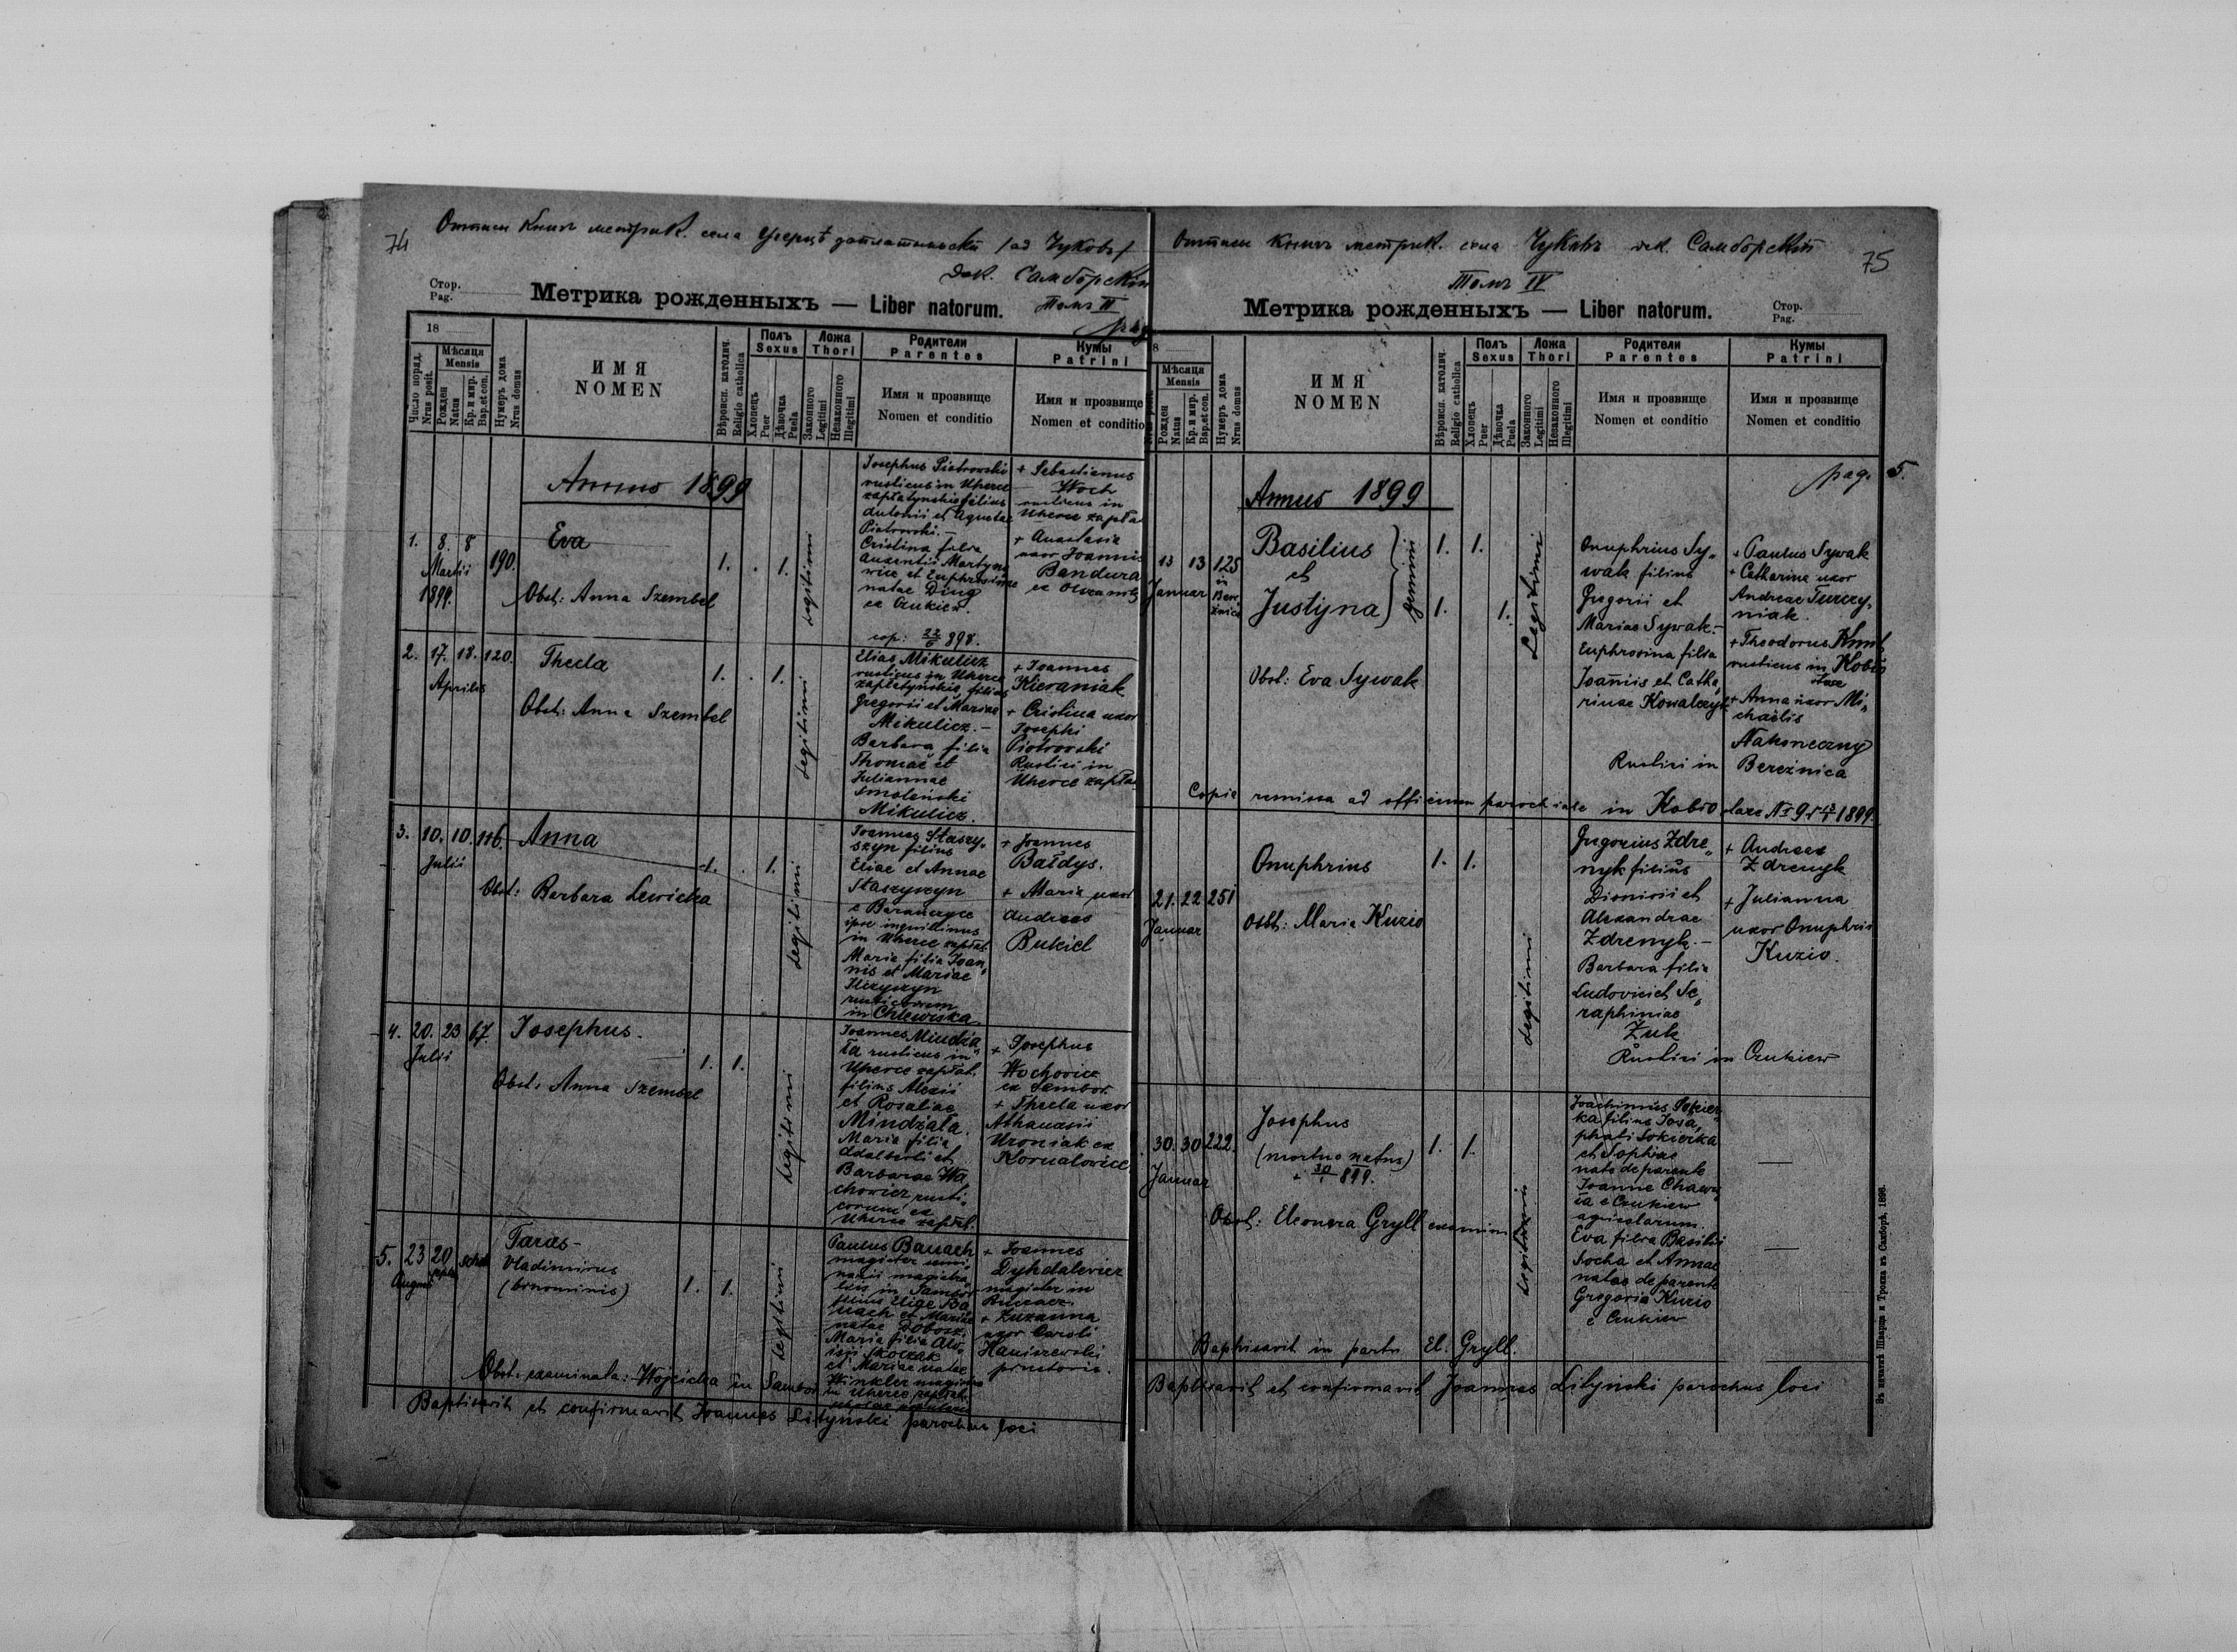 74
Оттиск Книгъ метрик. села
дек. Самборский
Томъ II
Стор.
Pag.
Метрика рожденныхъ — Liber natorum.
18
Число поряд.
Nrus posit.
Мѣсяца
Mensis
Рожден
Natus
Кр. и мир.
Bap. et con.
Нумеръ дома
Nrus domus
ИМЯ
NOMEN
Вѣроисп. католич.
Religio catholica
Полъ
Sexus
Хлопецъ
Puer
Дѣвочка
Puela
Ложа
Thori
Законного
Legitimi
Незаконного
Illegitimi
Родители
Parentes
Имя и прозвище
Nomen et conditio
Кумы
Patrini
Имя и прозвище
Nomen et conditio
Annus 1899
1. 8. 8
Martii
1899.
190.
Eva
Obst: Anna Szembel
1. . 1.
legitimi
Josephus Piotrowski
rusticus in Uherce
zapłatynskie filius
Antonii et Agnetae
Piotrowski.—
Cristina filia
Auxentii Martyno
wicz et Euphrosinae
natae Ding
ex Czukiew.
+ Sebastianus
Woch
rusticus in
Uherce zapła
+ Anastasia
uxor Joannis
Bandura
ex
cop: 898.
2. 17. 18. 120.
Aprilis
Thecla
Obst: Anna Szembel
1. . 1.
legitimi
Elias Mikulicz
rusticus in Uherce
zapłatyńskie filius
Gregorii et Mariae
Mikulicz.—
Barbara filia
Thomae et
Juliannae
Smoleński
Mikulicz.
+ Joannes
Kieraniak
+ Cristina uxor
Josephi
Piotrowski
Rustici in
Uherce zapła
3. 10. 10. 116.
Julii
Anna
Obst: Barbara Lewicka
1. . 1.
legitimi
Joannes Staszy„
szyn filius
Eliae et Annae
Staszyszyn
e Barańczyce
ipse inquilinus
in Uherce zapłat.
Maria filia Joan„
nis et Mariae
Ilczyszyn
rusticorum
in Chlewiska.
+ Joannes
Bałdys.
+ Maria uxor
Andreas
Bukiel
4. 20. 23 67.
Julii
Josephus.
Obst: Anna Szembel
1. 1.
legitimi
Joannes Mindza„
ła rusticus in
Uherce zapłat.
filius Alexii
et Rosaliae
Mindżała.
Maria filia
Adalberti et
Barbarae Wa
chowicz rusti„
corum ex
Uherce zapłat.
+ Josephus
Wochowicz
ex Sambor.
+ Thecla uxor
Athanasii
Uroniak ex
Kornalowice
5. 23 20
August
Taras-
Vladimirus
(binominis)
1. 1.
legitimi
Paulus Banach
magister semi„
narii magistra
lis in Sambor
filius Eliae Ba
nach et Mariae
natae Dobosz.
Maria filia Alo„
isii Skoczak
et Mariae natae
Winkler magistra
in Uherce zapłat.
+ Joannes
Dyhdalewicz
magister in
+ Zuzanna
uxor Caroli
Haniszewski
Obst. examinata: Wojcicka in Sambor
Baptisavit et confirmavit Joannes Lityński parochus loci
75
Оттиск Книгъ метрик. села Чуківъ дек. Самборский
Томъ IV
Метрика рожденныхъ — Liber natorum.
Стор.
Pag.
8
Мѣсяца
Mensis
Рожден
Natus
Кр. и мир.
Bap. et con.
Нумеръ дома
Nrus domus
ИМЯ
NOMEN
Вѣроисп. католич.
Religio catholica
Полъ
Sexus
Хлопецъ
Puer
Дѣвочка
Puela
Ложа
Thori
Законного
Legitimi
Незаконного
Illegitimi
Родители
Parentes
Имя и прозвище
Nomen et conditio
Кумы
Patrini
Имя и прозвище
Nomen et conditio
pag. 5.
Annus 1899
13 13 125
Januar
in
Bere
żnica
Basilius
et
Justyna
gemini
Obst: Eva Sywak
1. 1.
1. 1.
Legitimi
Onuphrius Sy„
wak filius
Gregorii et
Mariae Sywak.—
Euphrosina filia
Joannis et Catha„
rinae Kowalczyk
Rustici in Bereżnica
+ Paulus Sywak
+ Catharina uxor
Andreae Turczy„
niak.
+ Theodorus
rusticus in
+ Anna uxor Mi„
chaelis
Nakoneczny
Copia remissa ad officium parochiale in Koblo stare № 9 1899.
21. 22 251
Januar
Onuphrius
Obst: Maria Kuzio
1. 1.
legitimi
Gregorius Zdre„
nyk filius
Dionisii et
Alexandrae
Zdrenyk.—
Barbara filia
Ludovici et Se„
raphiniae
Żuk
Rustici in Czukiew
+ Andreas
Zdrenyk
+ Julianna
uxor Onuphrii
Kuzio.
30. 30 222.
Januar
Josephus
(mortuo natus)
+ 30/1 899.
Obst: Eleonora Gryll examin
1. 1.
Legitimi
Joachimus Sokier
ka filius Josa„
phati Sokierka
et Sophiae
nata de parente
Joanne
e Czukiew
agricolarum.
Eva filia Basilii
Socha et Annae
natae de parente
Gregorio Kuzio
e Czukiew
Baptisavit in partu El. Gryll.
Baptisavit et confirmavit Joannes Lityński parochus loci
Въ печатнѣ Шварца и Трояна въ Самборѣ, 1898.